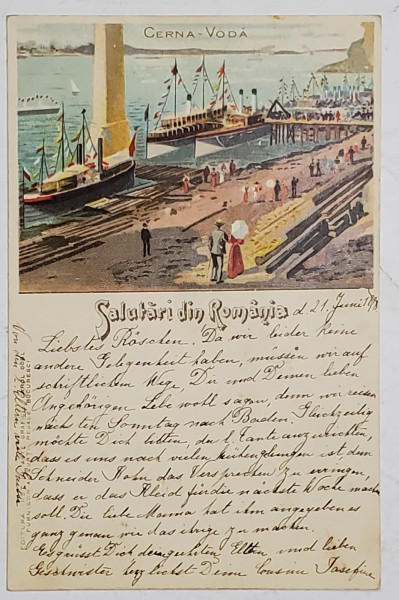 CERNA-VODĂ
Salutări din România
d. 21. Juni
Liebstes Röschen. Da wir leider keine
andere Gelegenheit haben, müssen wir auf
schriftlichem Wege, Dir und Deinen lieben
Angehörigen Lebe wohl sagen, denn wir reisen
nächsten Sonntag nach Baden. Gleichzeitig
möchte Dich bitten, der l. Tante auszurichten,
dass es uns nach vielen gelungen ist dem
Schneider Hahn das Versprechen zu erringen,
dass er das Kleid für die nächste Woche machen
soll. Die liebe Mama hat ihm angegeben es
ganz genau wie das ihrige zu machen.
Es grüsst Dich Eltern und lieben
Geschwister herzlichst Deine Cousine Josefine
Von den Eltern viele
EDITURA
BUCURESCI